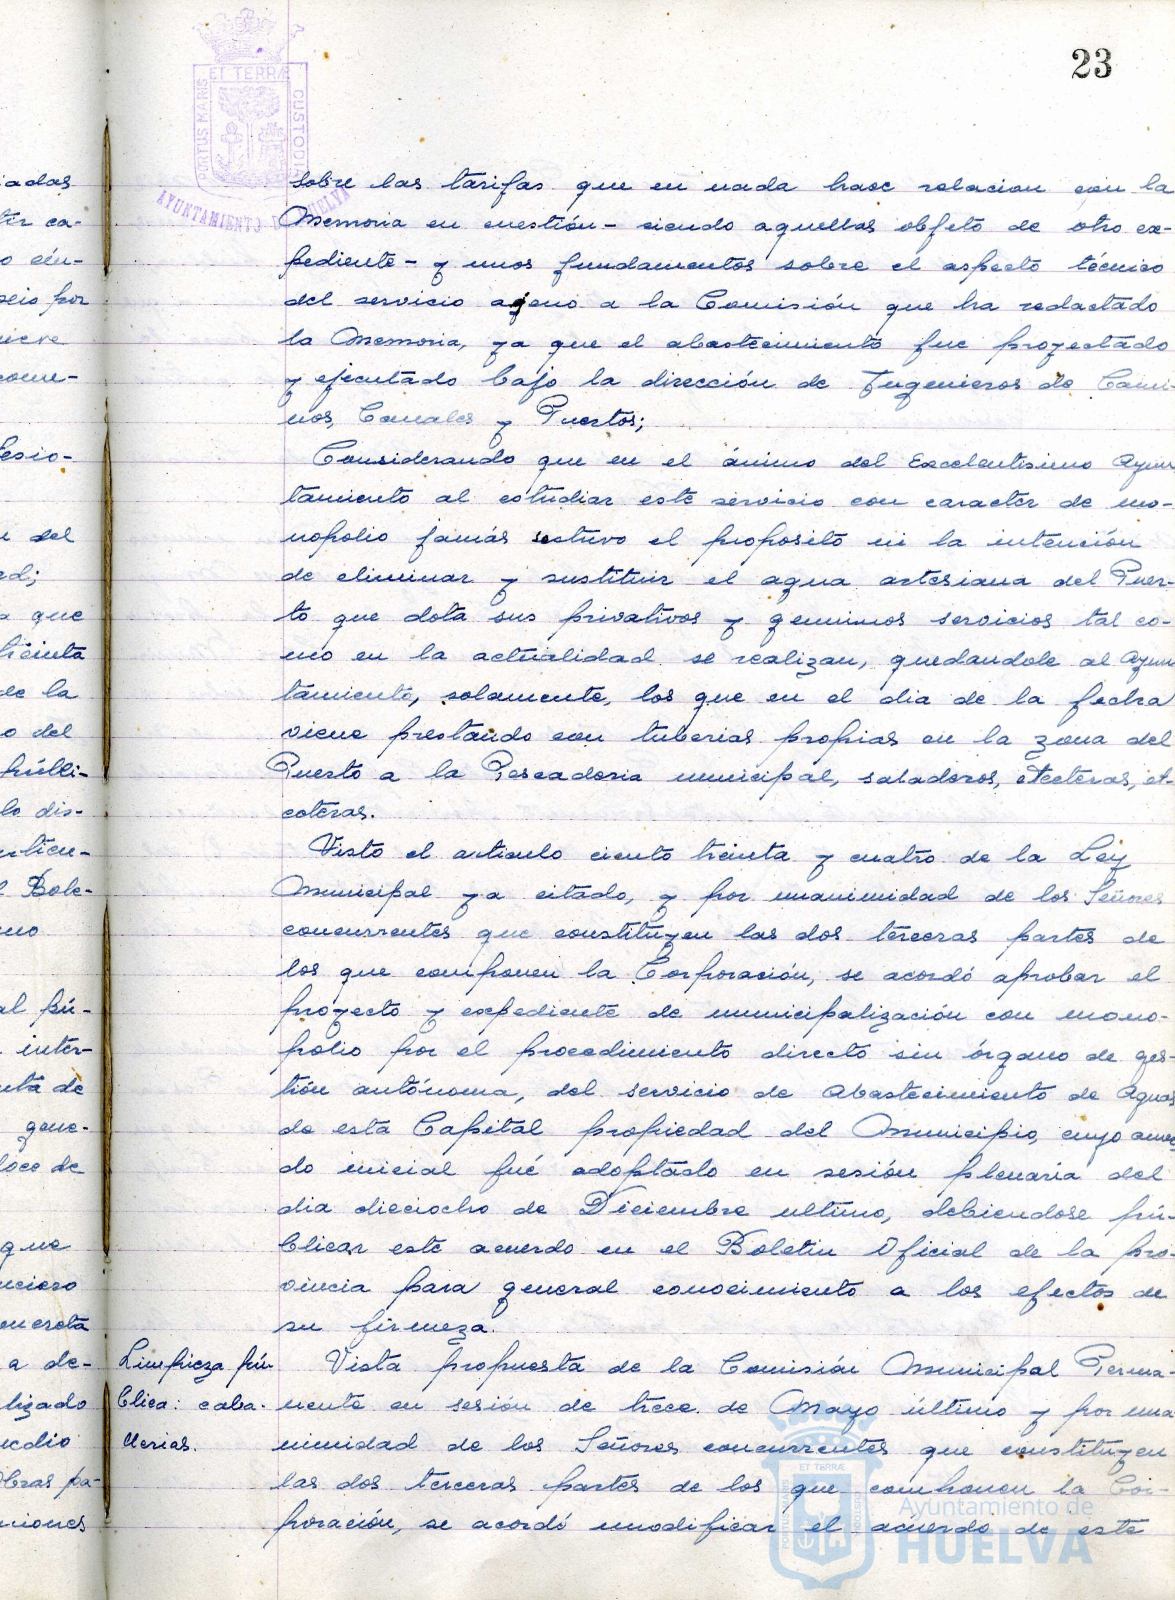 23
ET TERRÆ
PORTUS MARIS
CUSTODIA
AYUNTAMIENTO DE HUELVA
sobre las tarifas que en nada hace relacion con la
Memoria en cuestión - siendo aquellas objeto de otro ex-
pediente - y unos fundamentos sobre el aspecto técnico
del servicio ageno a la Comisión que ha redactado
la Memoria, ya que el abastecimiento fue proyectado
y ejecutado bajo la dirección de Ingenieros de Cami-
nos, Canales y Puertos;
Considerando que en el ánimo del Excelentisimo Ayun
tamiento al estudiar este servicio con caracter de mo-
nopolio jamás estuvo el proposito ni la intención
de eliminar y sustituir el agua artesiana del Puer-
to que dota sus privativos y genuinos servicios tal co-
mo en la actualidad se realizan, quedandole al Ayun
tamiento, solamente, los que en el dia de la fecha
viene prestando con tuberias propias en la zona del
Puerto a la Pescaderia municipal, saladeros, etceteras, et-
ceteras.
Visto el articulo ciento treinta y cuatro de la Ley
Municipal ya citado, y por unanimidad de los Señores
concurrentes que constituyen las dos terceras partes de
los que componen la Corporación, se acordó aprobar el
proyecto y expediente de municipalización con mono-
polio por el procedimiento directo sin órgano de ges-
tión autónoma, del servicio de Abastecimiento de Aguas
de esta Capital propiedad del Municipio, cuyo acuer
do inicial fué adoptado en sesión plenaria del
dia dieciocho de Diciembre ultimo, debiendose pú-
blicar este acuerdo en el Boletin Oficial de la pro-
vincia para general conocimiento a los efectos de
su firmeza.
Limpieza pú-
blica: caba-
llerias.
Vista propuesta de la Comisión Municipal Perma-
nente en sesión de trece de Mayo último y por una
nimidad de los Señores concurrentes que constituyen
las dos terceras partes de los que componen la Cor-
poración, se acordó modificar el acuerdo de este
iadas
ca-
seis por
del
que
de la
o del
dis-
Bole-
inter-
de
gene-
de
que
a de-
lizado
Obras pa-
ET TERRÆ
Ayuntamiento de
HUELVA